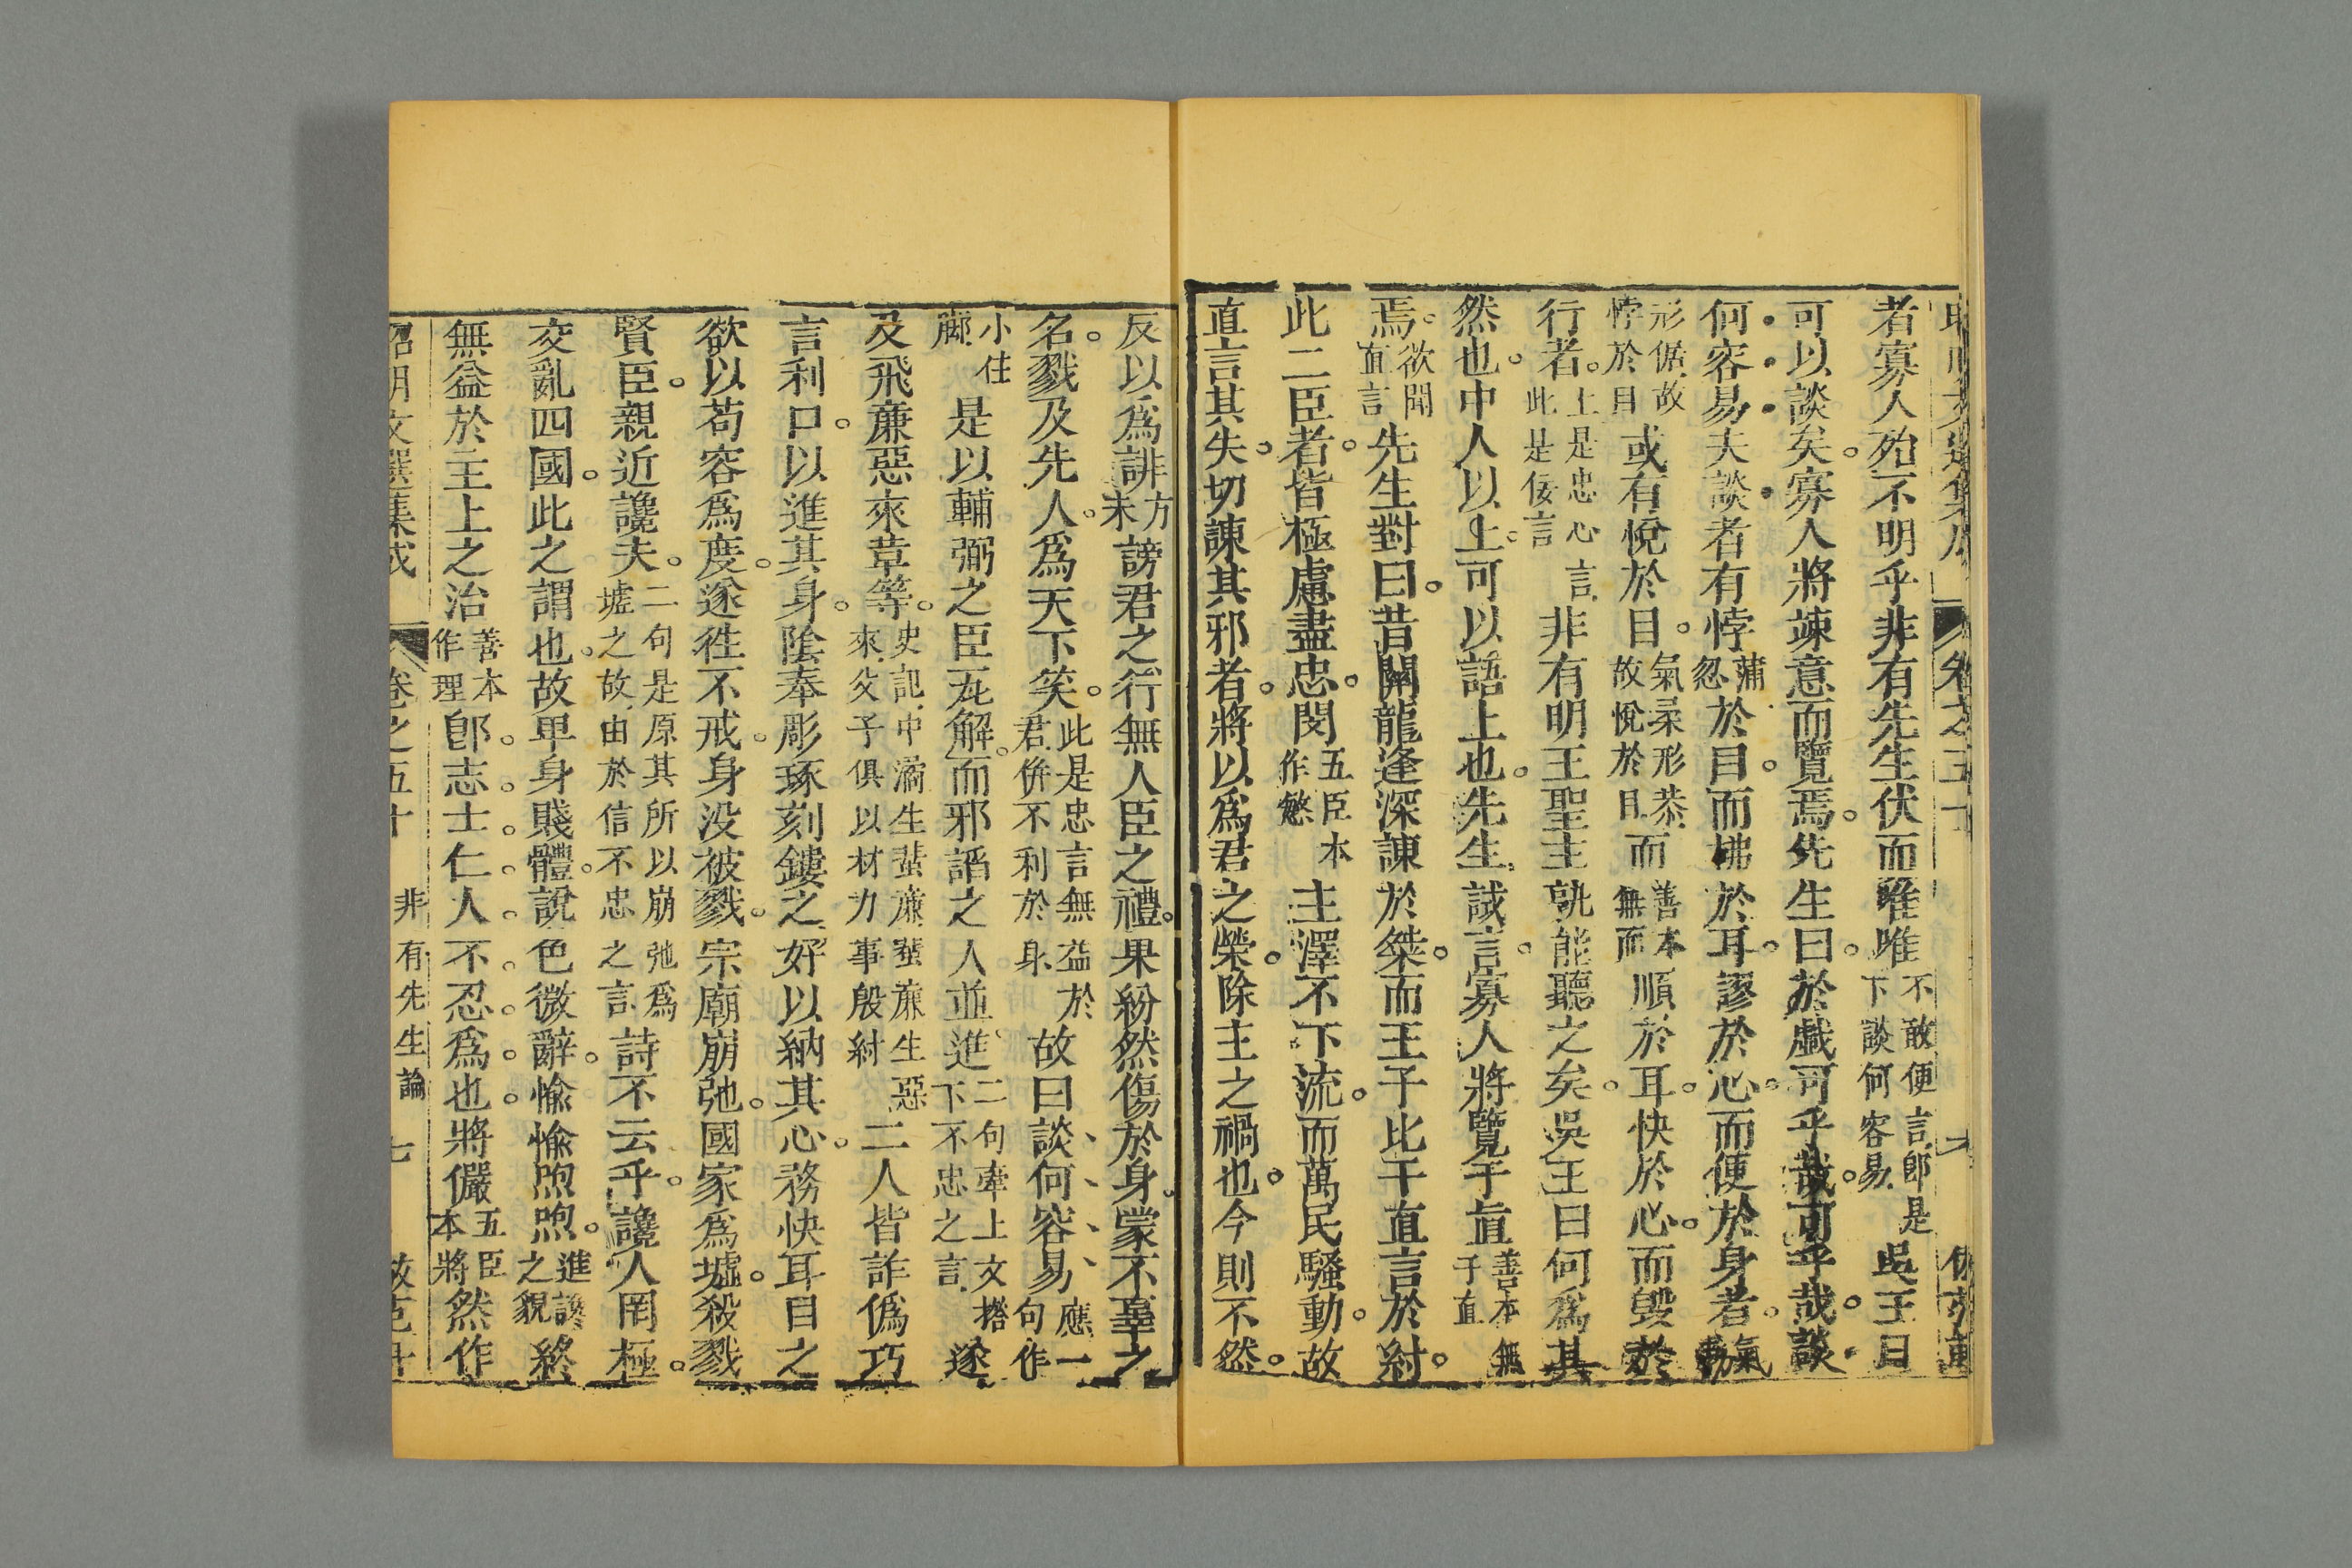 卷之五十
者寡人殆不明乎非有先生伏而唯唯不敢便言卽是下談何容易吳王曰
可以談矣寡人將竦意而覽焉先生曰於戲可乎哉可乎哉談
何容易夫談者有悖蒲忽於目而怫於耳謬於心而便於身者氣勃
形倨故悖於目或有悅於目氣柔形恭故悅於目而善本無而順於耳快於心而毀於
行者上是忠心言此是佞言非有明王聖主孰能聽之矣吳王曰何爲其
然也中人以上可以語上也先生試言寡人將覽于直善本無于直
焉欲聞直言先生對曰昔關龍逢深諫於桀而王子比干直言於紂
此二臣者皆極慮盡忠閔五臣本作愍主澤不下流而萬民騷動故
直言其失切諫其邪者將以爲君之榮除主之禍也今則不然
反以爲誹方未謗君之行無人臣之禮果紛然傷於身蒙不辜之
名戮及先人爲天下笑此是忠言無益於君併不利於身故曰談何容易應一句作
小住腳是以輔弼之臣瓦解而邪謟之人並進二句牽上文搭下不忠之言遂
及飛廉惡來革等史記中潏生蜚廉蜚廉生惡來父子俱以材力事殷紂二人皆詐僞巧
言利口以進其身陰奉彫琢刻鏤之好以納其心務快耳目之
欲以苟容爲度遂往不戒身没被戮宗廟崩弛國家爲墟殺戮
賢臣親近讒夫二句是原其所以崩弛爲墟之故由於信不忠之言詩不云乎讒人罔極
交亂四國此之謂也故卑身賤體說色微辭愉愉喣喣進讒之貌終
無益於主上之治善本作理卽志士仁人不忍爲也將儼五臣本將然作
昭明文選集成 卷之五十 非有先生論 七